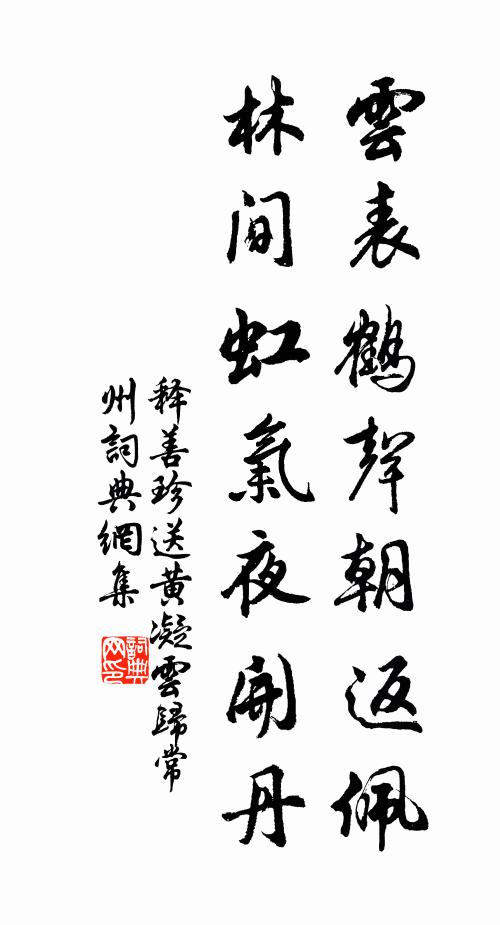 雲表鶴聲朝返佩
林間虹氣夜開丹
释善珍送黄凝雲歸常
州詞典網集
詞典網印